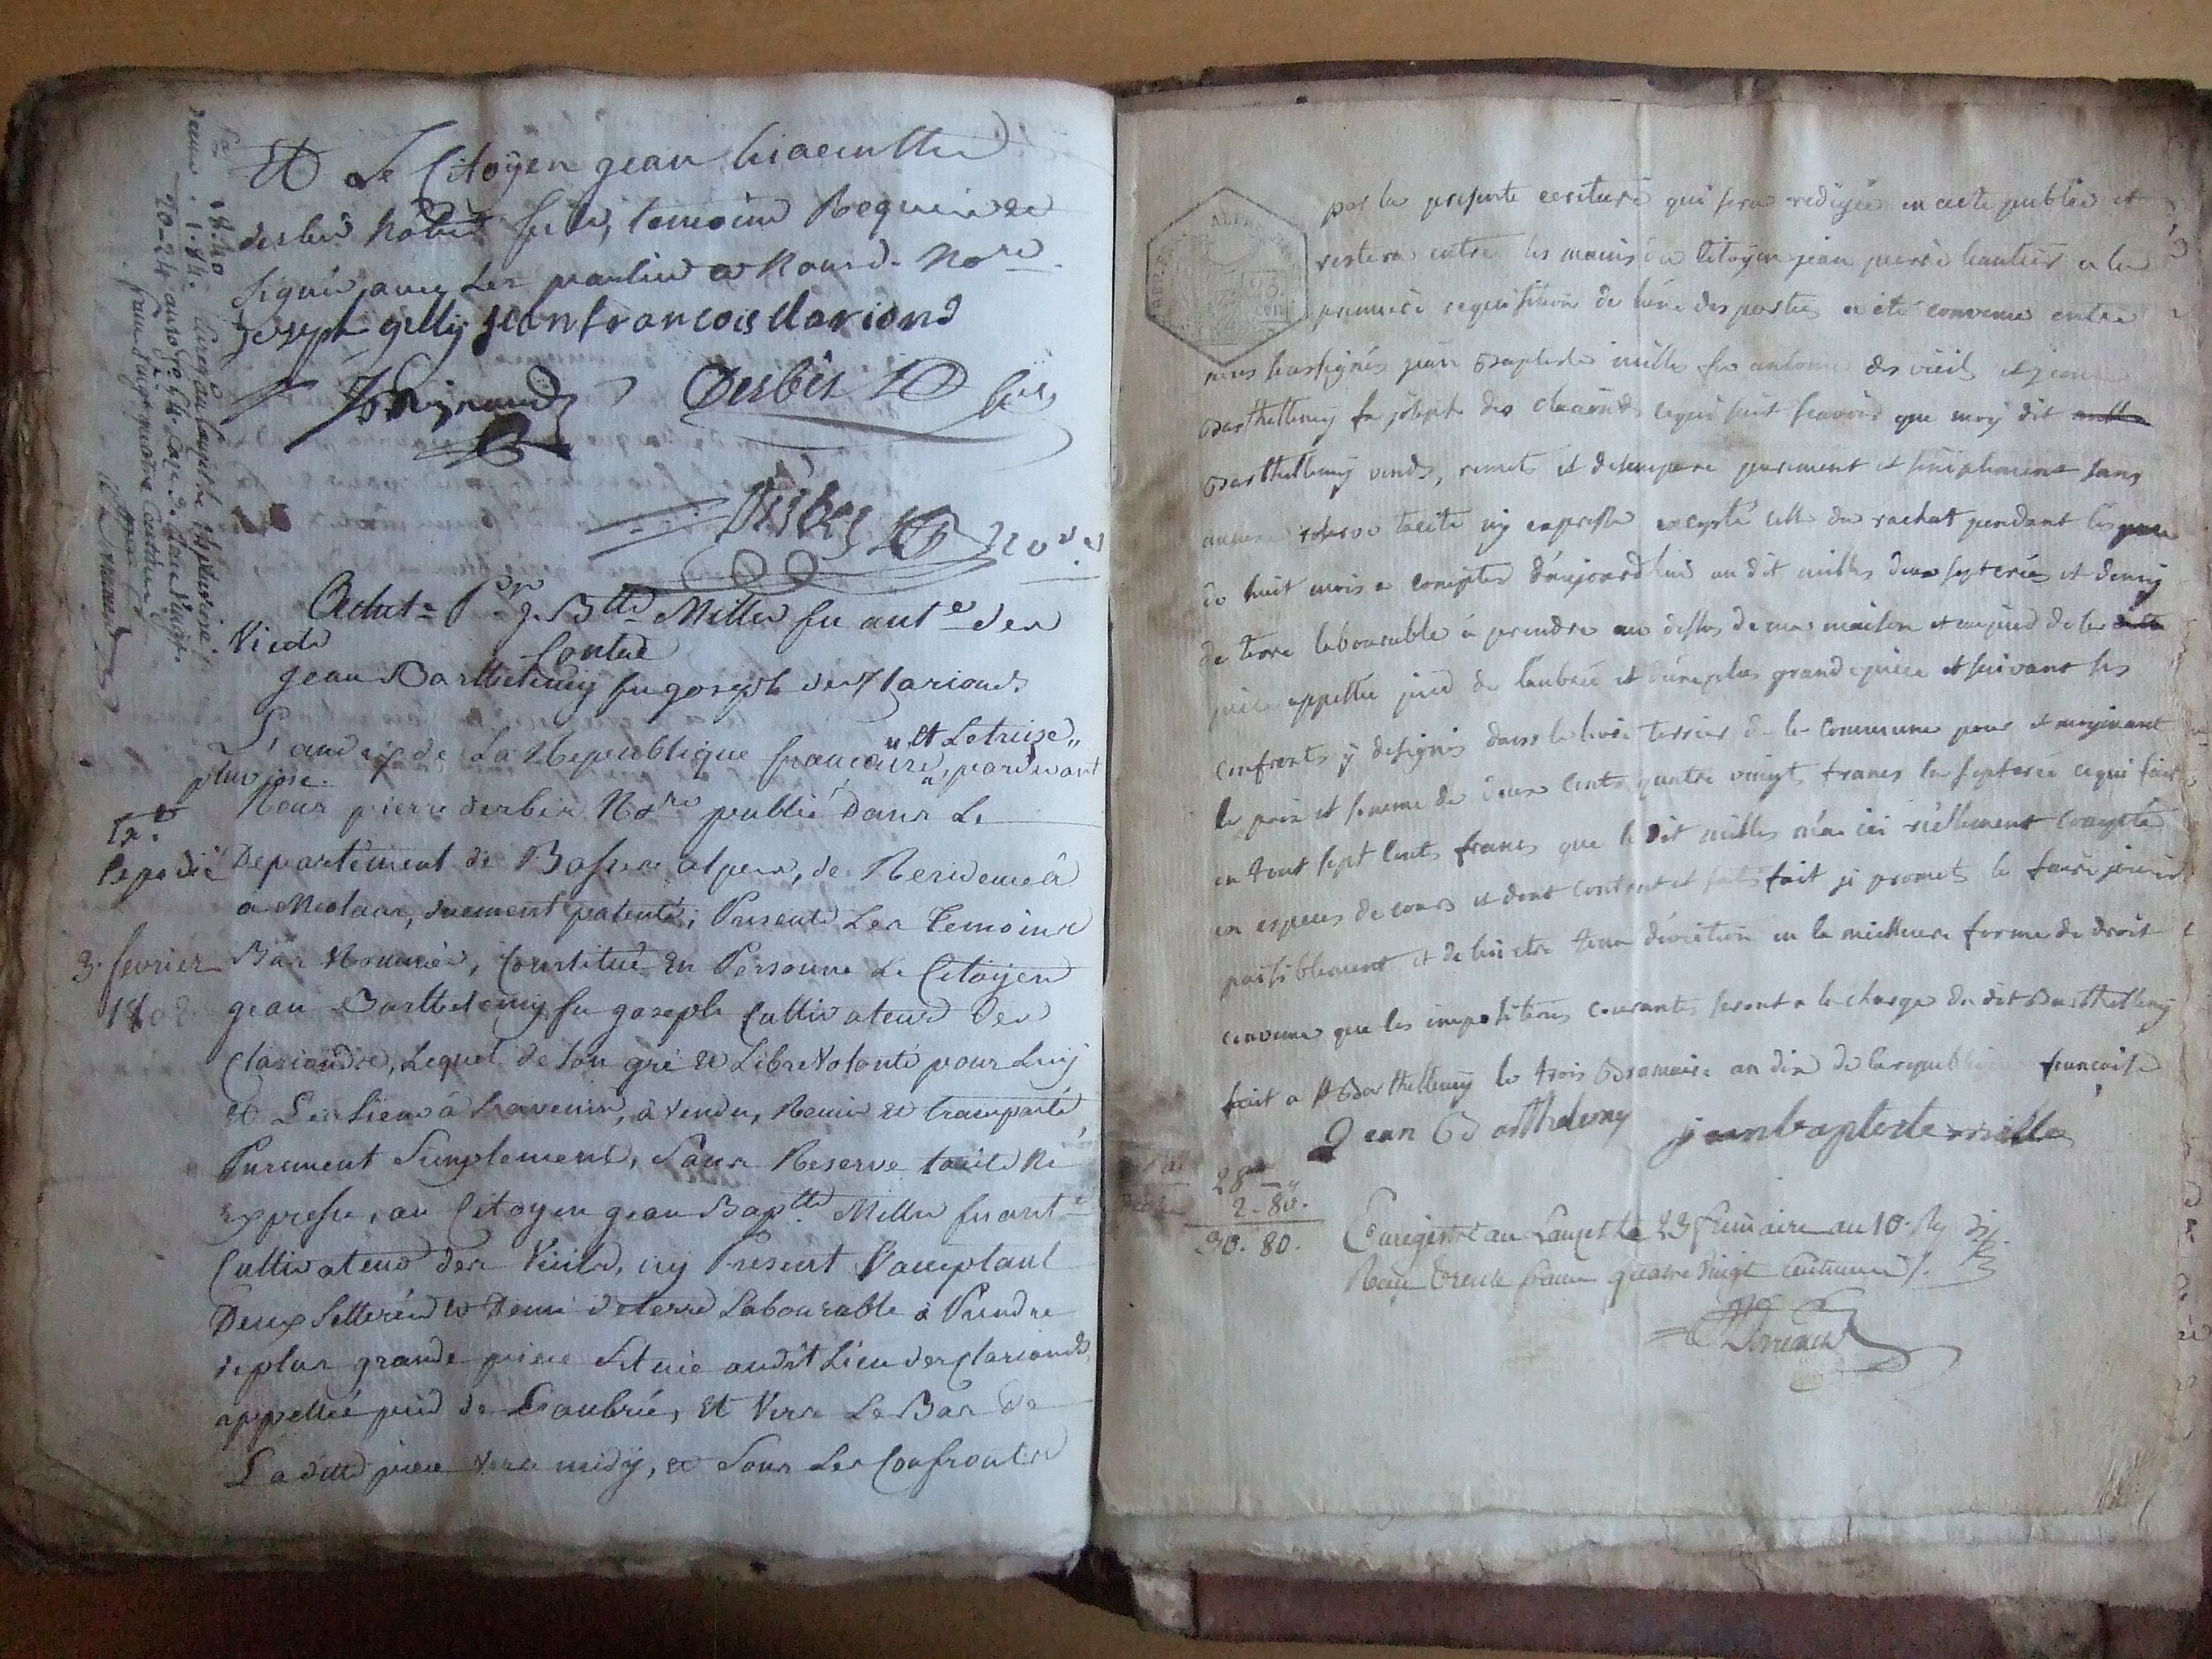 Et Le Citoyen jean hiacinthe
desbés Notre fils, temoins Requis et
signés avec Les parties et Nous d. Nore
joseph gelly jean francois clariond
Desbés fils
Desbés Nore
Achat = Pr J. Btte Mille fu ante des
Vieils
Contre
jean Barthelemy fu joseph des Clarionds
L'an dix de La Republique francaise, " et Le treise " pardevant
pluviose.
Nous pierre desbés Nore publié Dans Le
Departement de Basses alpes, de Residence à
a Meolans, duement patenté; Presents Les Temoins
Bas Nommés, Constitué En Personne Le Citoyen
jean Barthelemy fu joseph Cultivateur des
Clarionds, Lequel de son gré et Libre Volonté pour Luy
et Les siens à L'avenir, à vendu, Remis et transporté,
Purement Simplement, Sans Reserve tacite Ni
Expresse, au Citoyen jean Baptte Mille fu ante
Cultivateur des Vieils, icy Present L'acceptant
Deux setterées et Demi de terre Labourable à Prendre
de plus grande piece Située audit Lieu des Clarionds
appellée pied de Laubrée, et Vers Le Bas de
La ditte piece vers midy, et sous Les Confronts
Expedié
3. fevrier
1802
18.40
1.84.
20-24
par la presente ecriture qui sera redigée en acte public et
restera entre les mains du Citoyen jean pierre hautier a la
premiere requisition de l'une des parties a eté convenu entre
nous soussignés jean Baptiste mille fu antoine des vieils et jean
Barthellemy fu joseph des clarionds ce qui suit scavoir que moy dit
Barthellemy vends, remets et desempare purement et simplement sans
aucune reserve tacite ny expresse excepté celle du rachat pendant
de huit mois a compter d'aujourdhuy au dit mille deux septerées et demy
de terre labourable à prendre au dessus de ma maison et au pied de la
piece appellée pied de laubrée et d'une plus grande piece et suivant ses
confronts y designés dans le livre terrier de la Commune pour et moyenant
le prix et somme de deux cents quatre vingt francs la septerée ce qui fait
en tout sept cents francs que le dit mille m'a ici réellement compté
en especes de cours et dont content et satisfait je promets le faire jouir
paisiblement et de lui etre tenu d'eviction en la meilleure forme de droit
convenu que les impositions courantes seront a la charge du dit Barthellemy
fait a St Barthellemy le trois Brumaire an dix de la republique francoise
Jean Barthelemy jean baptiste mille
28 - "
2 - 80.
30. 80.
Enregistré au Lauzet Le 23 frimaire an 10. Rep
Reçu trente francs quatre vingt centimes